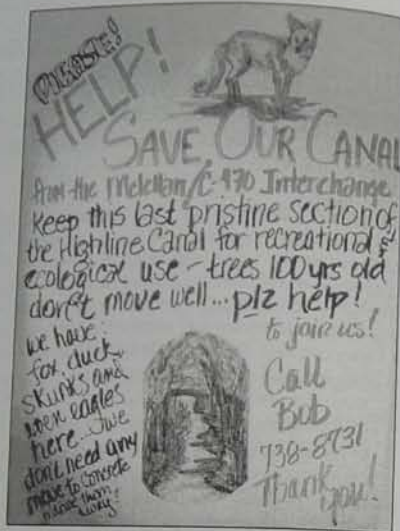 PLEASE!
HELP!
SAVE OUR CANAL
from the Mclellan/C-470 Interchange
Keep this last pristine section of
the Highline Canal for recreational &
ecological use - trees 100yrs old
don't move well... plz help!
to join us!
we have:
fox, duck,
skunks, and
even eagles
here... we
dont need any
more to concrete
them
away!
Call
Bob
738-8731
Thank
you!